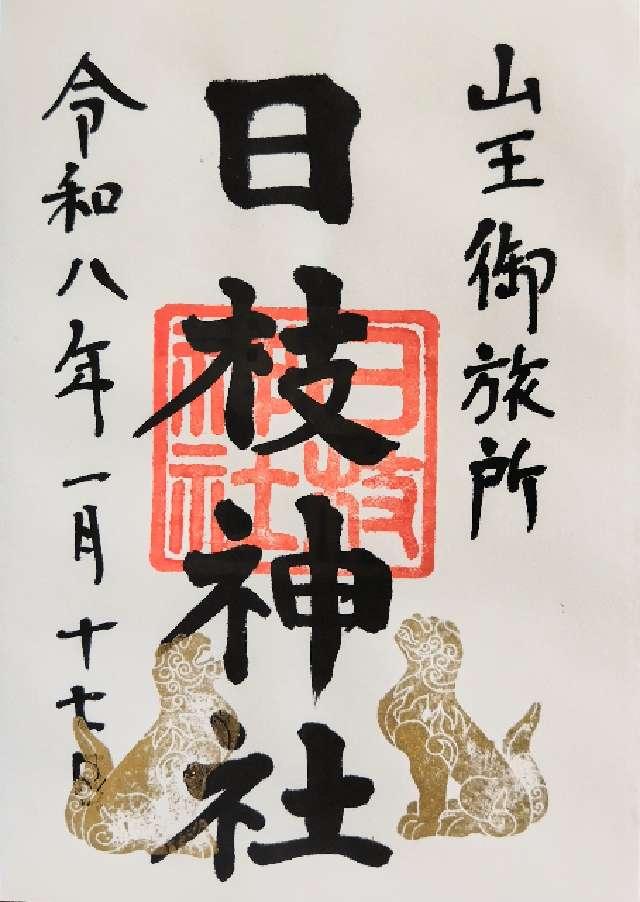 山王御旅所
日枝神社
日枝
神社
令和八年一月十七日